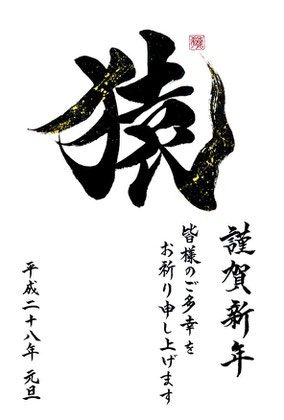 猿
謹賀新年
皆様のご多幸を
お祈り申し上げます
平成二十八年 元旦